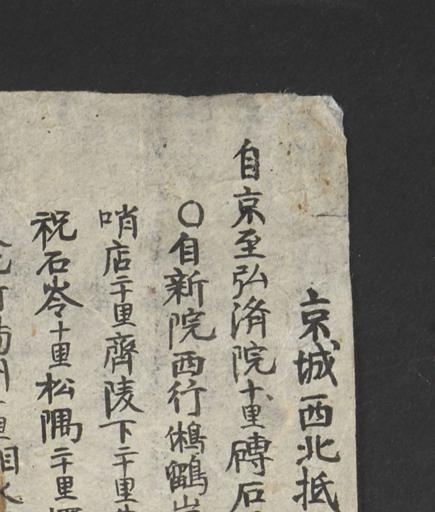 京城西北抵
自京至弘済院十里磚石
〇自新院西行鵂鶹岩
哨店二十里齊陵下二十里
祝石岺十里松隅二十里